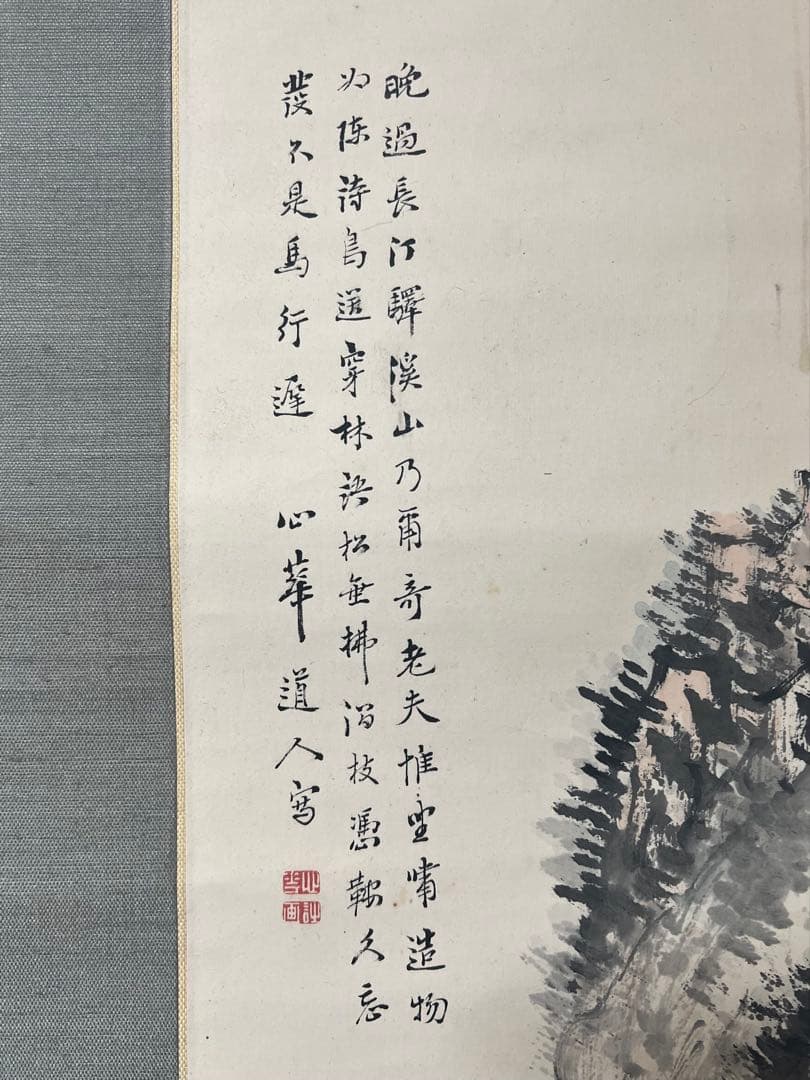 晚過長汀驛溪山乃爾奇老夫惟坐嘯造物
为陳詩鳥送穿林語松垂拂澗枝憑鞍久忘
發不是馬行遲 心華道人寫